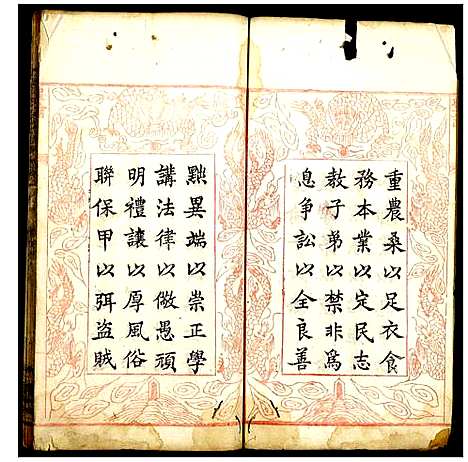 重農桑以足衣食
務本業以定民志
教子弟以禁非爲
息争訟以全良善
黜異端以崇正學
講法律以儆愚頑
明禮讓以厚風俗
聯保甲以弭盜賊